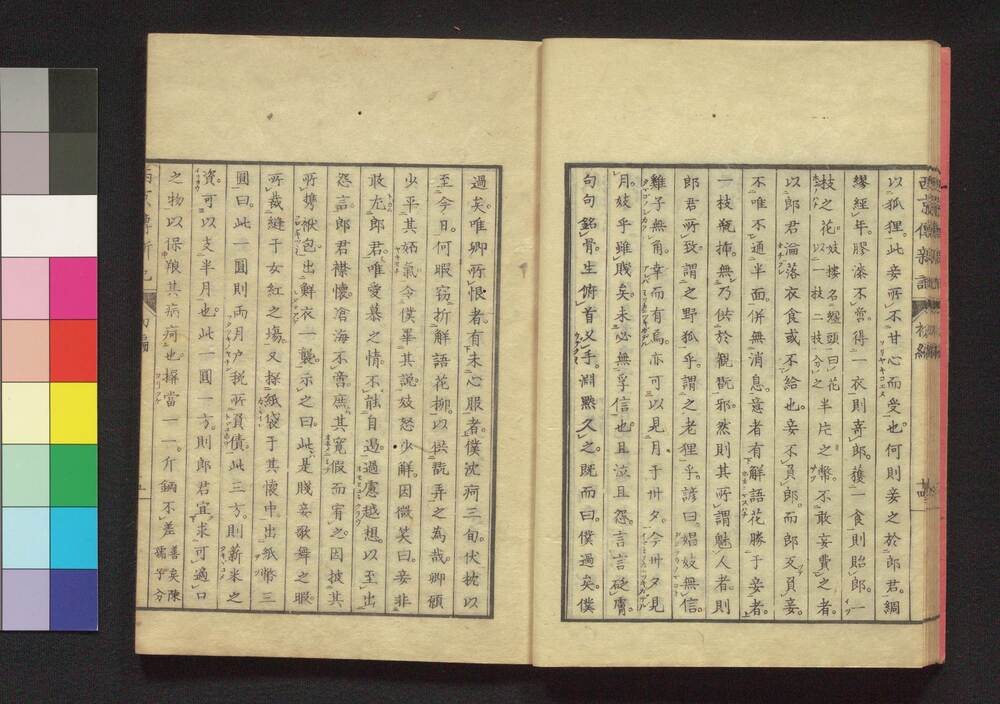 以狐狸。此妾所不甘心而受也。何則妾之於郎君。綢
繆經年。膠漆不啻。得一衣則寄郎。獲一食則貽郎。一
枝之花。妓樓名纏頭曰花以一枝二枝分之半片之幣。不敢妄費之者。
以郎君淪落衣食或不給也。妾不負郎。而郎反負妾。
不唯不通半面。併無消息。意者有解語花勝于妾者。
一枝瓶揷。無乃供於觀翫邪。然則其所謂魅人者。則
郎君所致。謂之野狐乎。謂之老狸乎。諺曰。娼妓無信。
雞子無角。幸而有焉。亦可以見月于卅夕。今卅夕見
月。妓乎雖賤矣。未必無孚信也。且泣且怨。言言砭膚。
句句銘骨。生俯首叉手。淵默久之。既而曰。僕過矣。僕
過矣。唯卿所恨者。有未心服者。僕沈疴三旬。伏枕以
至今日。何暇竊折解語花柳。以供翫弄之為哉。卿頗
少平其妬氣。令僕畢其說。妓怒少解。因微笑曰。妾非
敢尤郎君。唯愛慕之情。不能自遏。過慮越想。以至出
怨言。郎君襟懷。滄海不啻。庶其寬假而宥之。因披其
所携袱包。出鮮衣一襲。示之曰。此是賤妾歌舞之暇
所裁縫于女紅之塲。又探紙袋于其懷中。出紙幣三
圓曰。此一圓則兩月戶稅所負債。此三方。則薪米之
資。可以支半月也。此一圓一方。則郎君宜求可適口
之物以保羪其病疴也。探當一一。斤鍋不差善矣陳孺子分